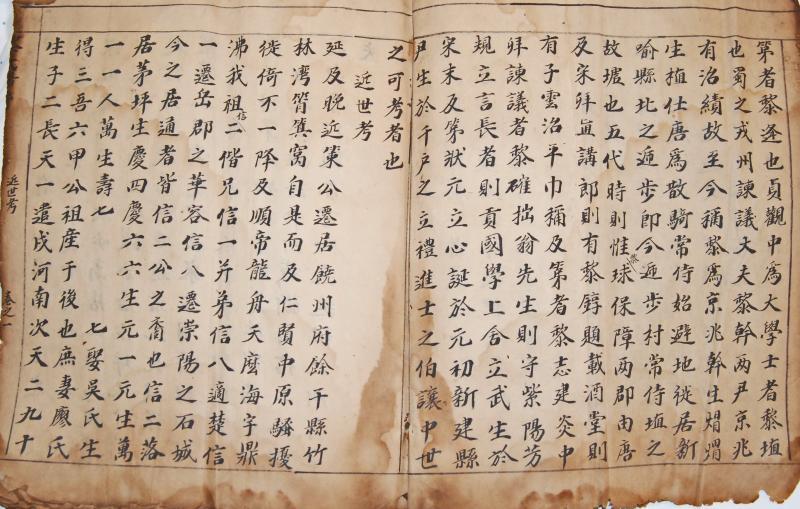 第者黎逢也貞觀中為大學士者黎埴
也蜀之戎州諫議大夫黎幹兩尹京兆
有治績故至今稱黎為京兆幹生熠熠
生植仕唐為散騎常侍始避地徙居新
喻縣北之逓步即今逓步村常侍埴之
故墟也五代時則惟黎球保障兩郡由唐
及宋拜直講郎則有黎錞題載酒堂則
有子雲治平巾稱及第者黎志建炎中
拜諫議者黎確拙翁先生則守紫陽芳
規立言長者則貢國學上舍立武生於
宋末及第狀元立心誕於元初新建縣
尹生於千戸之立禮進士之伯讓中世
之可考者也
近世考
延及晚近策公遷居饒州府餘干縣竹
林灣筲箕窩自是而及仁賢中原騷擾
徙倚不一降及順帝龍舟天魔海宇鼎
沸我祖信二偕兄信一并弟信八適楚信
一遷岳郡之華容信八遷崇陽之石城
今之居通者皆信二公之裔也信二落
居茅坪生慶四慶六六生元一元生萬
一一人萬生壽七 七娶吳氏生
得三吾六甲公祖產于後也庶妻廖氏
生子二長天一遣戍河南次天二九十
近世考
卷之一